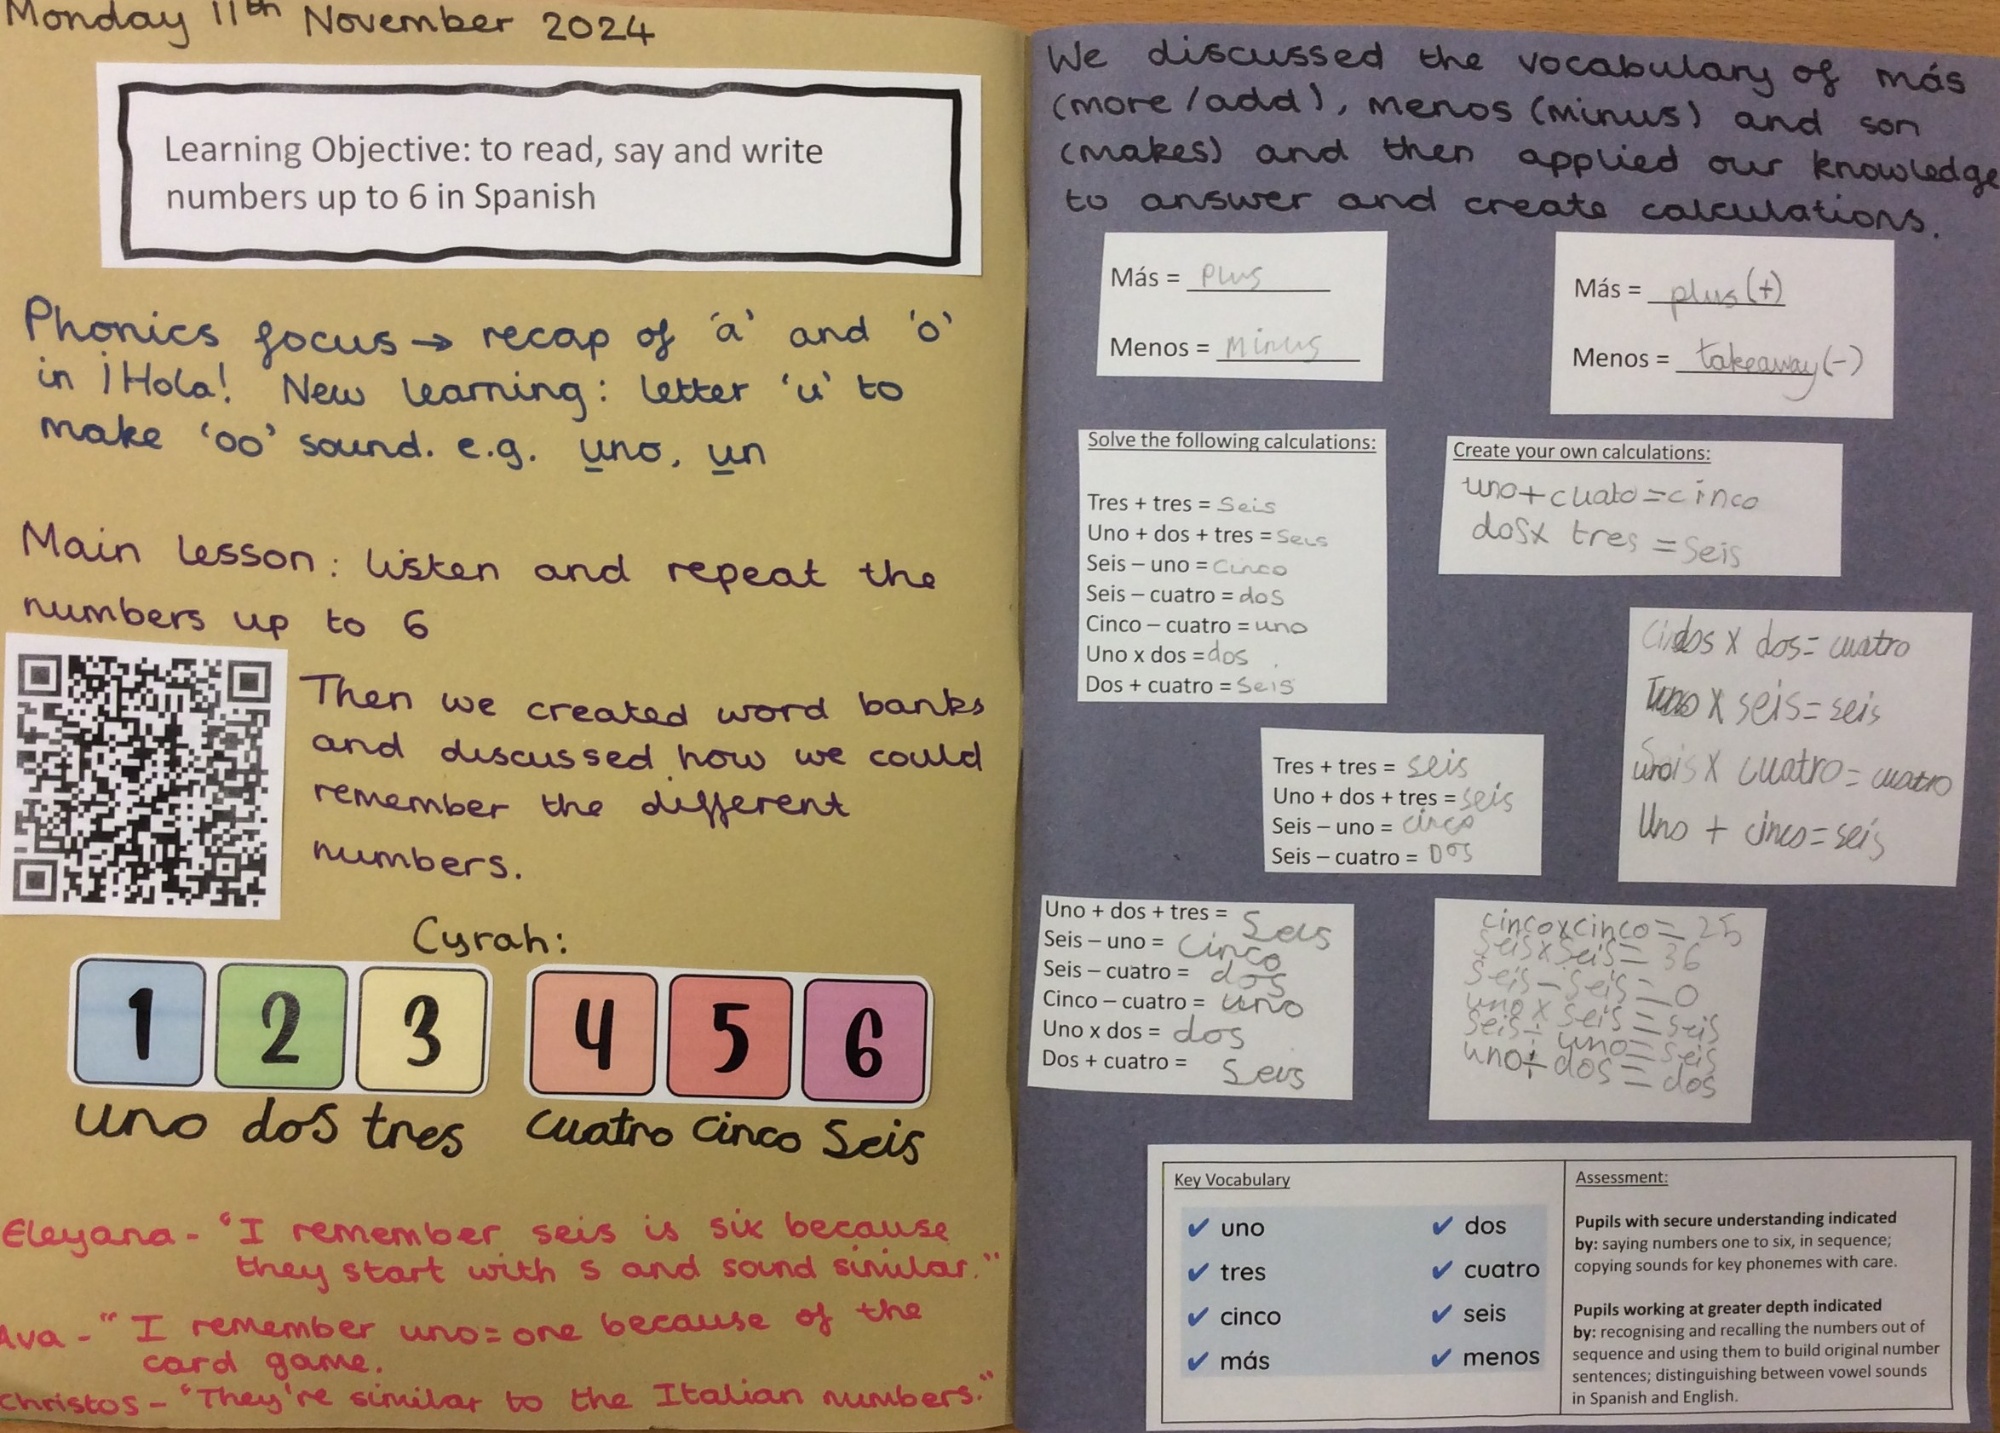 Monday 11th November 2024
Learning Objective: to read, say and write
numbers up to 6 in Spanish
Phonics focus → recap of 'a' and 'o'
in ¡Hola! New learning: letter 'u' to
make 'oo' sound. e.g. uno, un
Main lesson: listen and repeat the
numbers up to 6
Then we created word banks
and discussed how we could
remember the different
numbers.
Cyrah:
1 2 3 4 5 6
uno dos tres cuatro cinco seis
Eleyana - "I remember seis is six because
they start with s and sound similar."
Ava - "I remember uno = one because of the
card game.
Christos - "They're similar to the Italian numbers."
We discussed the vocabulary of más
(more/add), menos (minus) and son
(makes) and then applied our knowledge
to answer and create calculations.
Más = plus
Menos = minus
Más = plus (+)
Menos = takeaway (-)
Solve the following calculations:
Tres + tres = seis
Uno + dos + tres = seis
Seis – uno = cinco
Seis – cuatro = dos
Cinco – cuatro = uno
Uno x dos = dos
Dos + cuatro = seis
Create your own calculations:
uno + cuato = cinco
dos x tres = seis
dos x dos = cuatro
uno x seis = seis
uno x cuatro = cuatro
Uno + cinco = seis
Tres + tres = seis
Uno + dos + tres = seis
Seis – uno = cinco
Seis – cuatro = Dos
Uno + dos + tres = seis
Seis – uno = cinco
Seis – cuatro = dos
Cinco – cuatro = uno
Uno x dos = dos
Dos + cuatro = seis
cinco x cinco = 25
seis x seis = 36
seis - seis = 0
uno x seis = seis
seis ÷ uno = seis
uno dos = dos
Key Vocabulary
✔ uno ✔ dos
✔ tres ✔ cuatro
✔ cinco ✔ seis
✔ más ✔ menos
Assessment:
Pupils with secure understanding indicated
by: saying numbers one to six, in sequence;
copying sounds for key phonemes with care.
Pupils working at greater depth indicated
by: recognising and recalling the numbers out of
sequence and using them to build original number
sentences; distinguishing between vowel sounds
in Spanish and English.